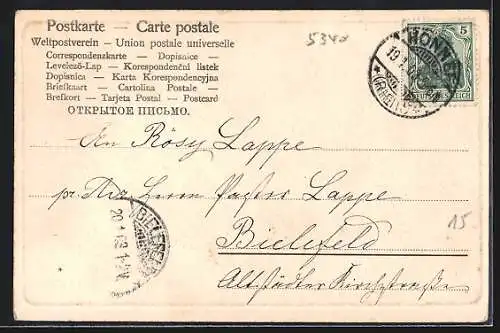 Postkarte — Carte postale
Weltpostverein - Union postale universelle
Correspondenzkarte — Dopisnice —
Levelező-Lap — Korespondenční listek
Dopisnica — Karta Korespondencyjna
Briefkaart — Cartolina Postale —
Brefkort — Tarjeta Postal — Postcard
ОТКРЫТОЕ ПИСЬМО.
534a
5
BONN
DEUTSCHES REICH
An Rösy Lappe
pr. Adr. Herrn Pastor Lappe
15
Bielefeld
Altstädter Kirchstraße
BIELEFELD